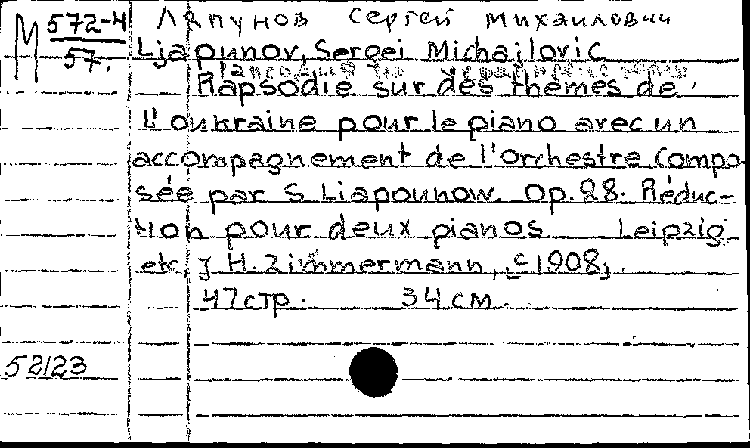 М 572-4
57.
Ляпунов Сергей Михаилович
Ljapunov, Sergei Michajlovic
Rapsodie sur des thèmes de
l'oukraine pour le piano avec un
accompagnement de l'orchestre Compo
sée par S. Liapounow. Op. 28. Réduc-
tion pour deux pianos Leipzig
etc, J. H. Zimmermann, c 1908,.
47 стр. 34 см.
52123